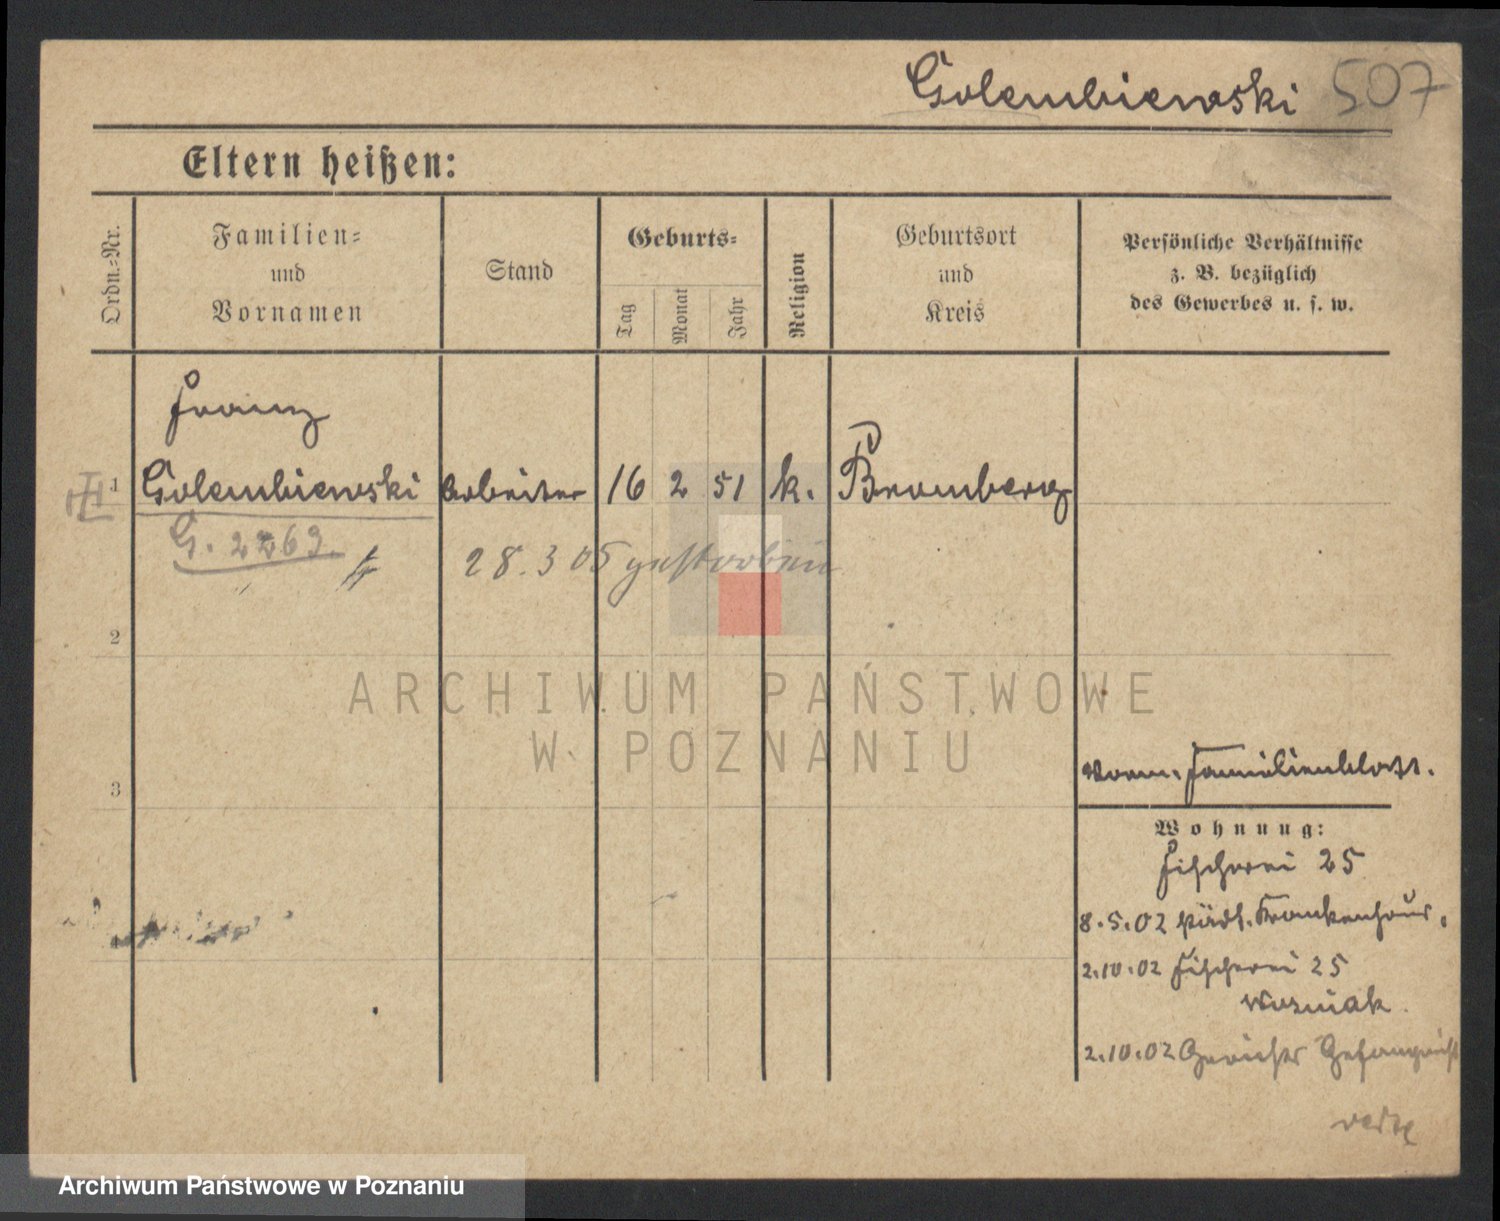 Golembiewski 507
Eltern heißen:
Ordn.-Nr.
Familien-
und
Vornamen
Stand
Geburts-
Tag
Monat
Jahr
Religion
Geburtsort
und
Kreis
Persönliche Verhältnisse
z. B. bezüglich
des Gewerbes u. s. w.
Franz
1 Golembiewski Arbeiter 16 2 51 k. Bromberg
G. 2263
28.3 05 gestorben
2
ARCHIWUM PAŃSTWOWE
W POZNANIU
3
Familienblatt.
Wohnung:
Fischerei 25
8.5.02 städt. Krankenhaus.
2.10.02 Fischerei 25
Wozniak
2.10.02 Gerichts Gefängniß
verte
Archiwum Państwowe w Poznaniu